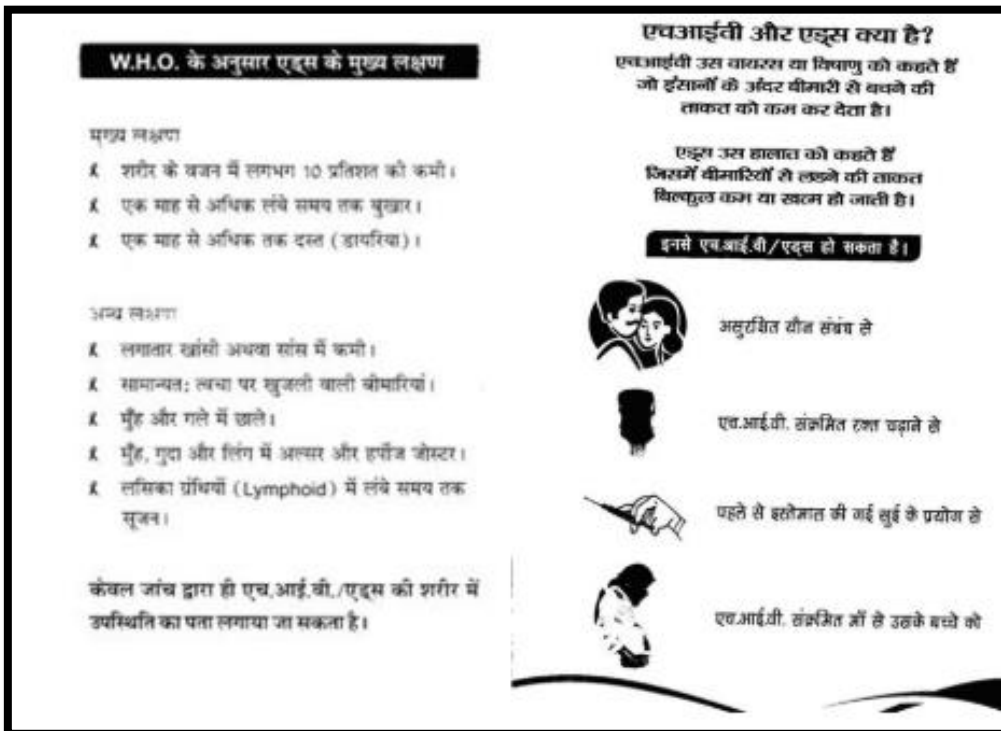 W.H.O. के अनुसार एड्स के मुख्य लक्षण
मुख्य लक्षण
शरीर के वजन में लगभग 10 प्रतिशत की कमी।
एक माह से अधिक लंबे समय तक बुखार।
एक माह से अधिक तक दस्त (डायरिया)।
अन्य लक्षण
लगातार खांसी अथवा सांस में कमी।
सामान्यत: त्वचा पर खुजली वाली बीमारियां।
मुँह और गले में छाले।
मुँह, गुदा और लिंग में अल्सर और हर्पीज जोस्टर।
लसिका ग्रंथियों (Lymphoid) में लंबे समय तक
सूजन।
केवल जांच द्वारा ही एच.आई.वी./एड्स की शरीर में
उपस्थिति का पता लगाया जा सकता है।
एचआईवी और एड्स क्या है?
एचआईवी उस वायरस या विषाणु को कहते हैं
जो इंसानों के अंदर बीमारी से बचने की
ताकत को कम कर देता है।
एड्स उस हालात को कहते हैं
जिसमें बीमारियों से लडने की ताकत
बिल्कुल कम या खत्म हो जाती है।
इनसे एच.आई.वी/एड्स हो सकता है।
असुरक्षित यौन संबंध से
एच.आई.वी. संक्रमित रक्त चढ़ाने से
पहले से इस्तेमाल की गई सुई के प्रयोग से
एच.आई.वी. संक्रमित माँ से उसके बच्चे को